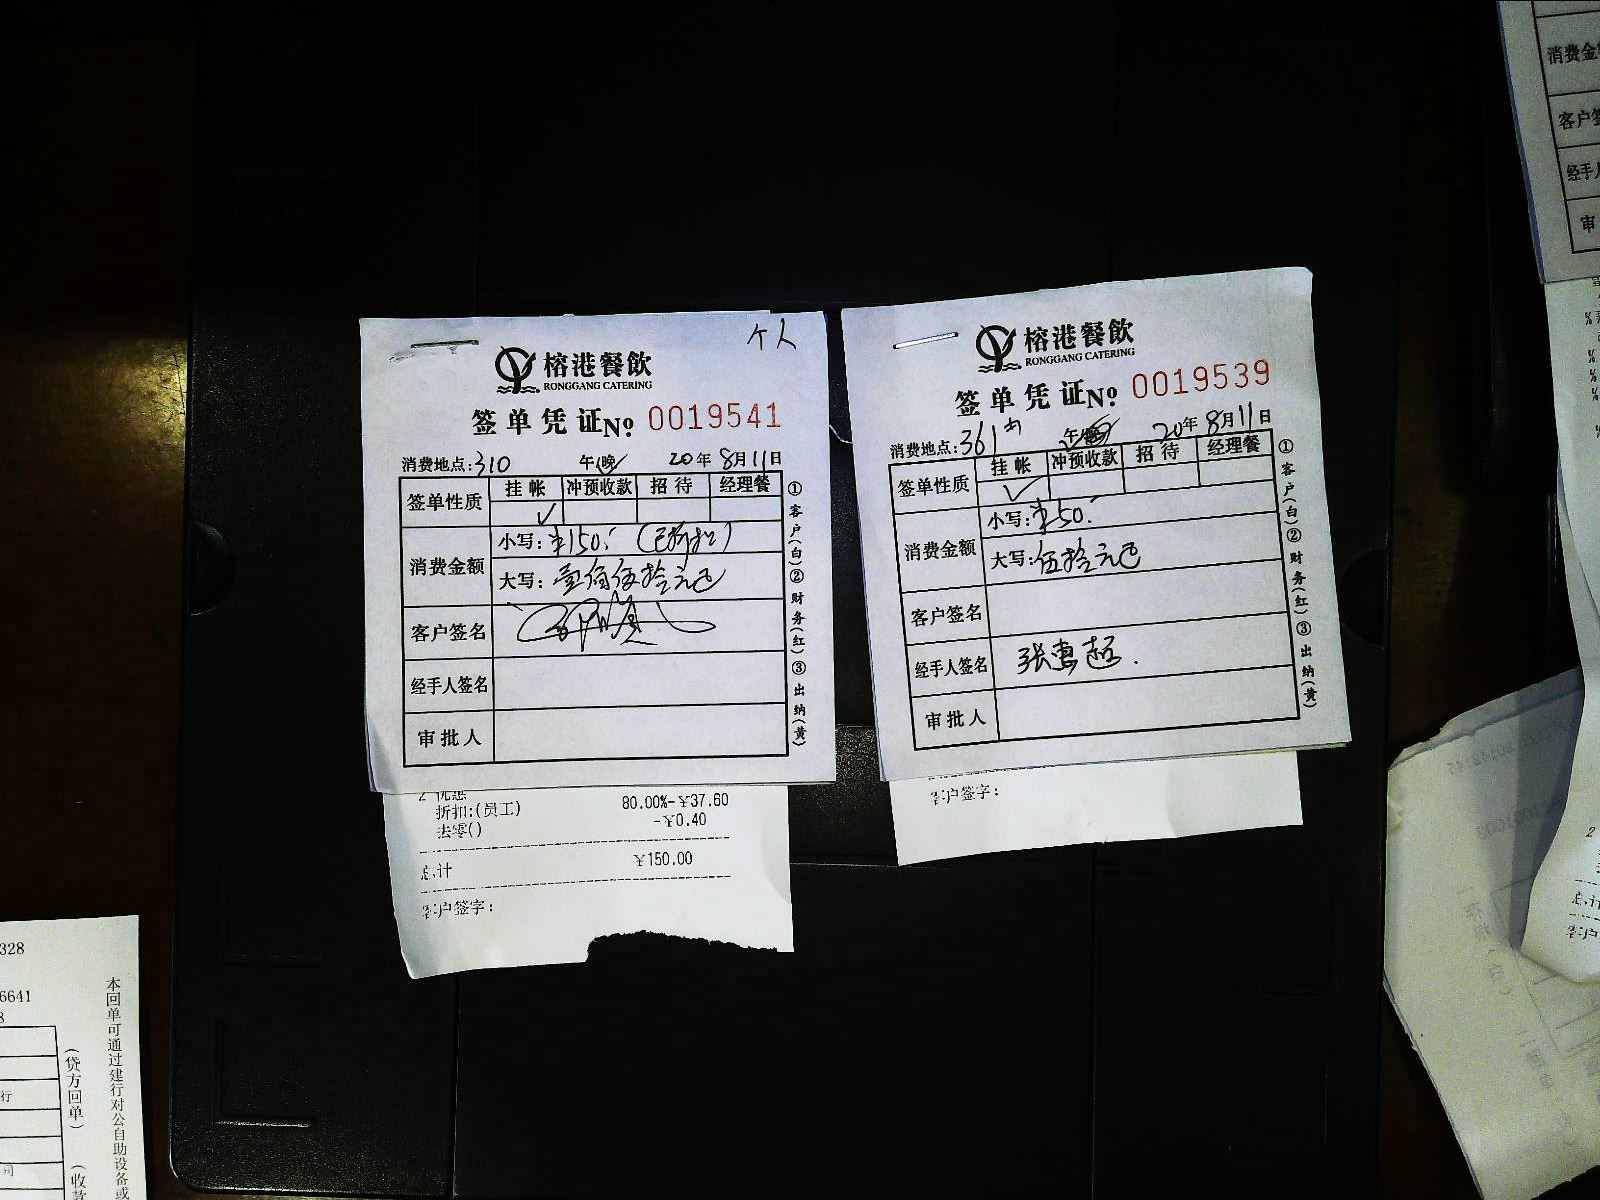 个人
榕港餐飲
RONGGANG CATERING
签单凭证No 0019541
消费地点:310 午(晚) 20年8月11日
签单性质 挂帐 冲预收款 招待 经理餐
✓
消费金额 小写:¥150.- (已折扣)
大写:壹佰伍拾元正
客户签名
经手人签名
审批人
①客户(白)②财务(红)③出纳(黄)
2 优惠
折扣:(员工) 80.00%-¥37.60
法零() -¥0.40
总计 ¥150.00
客户签字:
榕港餐飲
RONGGANG CATERING
签单凭证No 0019539
消费地点:361 午 20年8月11日
签单性质 挂帐 冲预收款 招待 经理餐
✓
消费金额 小写:¥50.-
大写:伍拾元正
客户签名
经手人签名 张惠超.
审批人
①客户(白)②财务(红)③出纳(黄)
客户签字:
消费金
客户签
经手人
审
总计
客户
328
6641
8
行
司
(贷方回单)
(收款
本回单可通过建行对公自助设备或